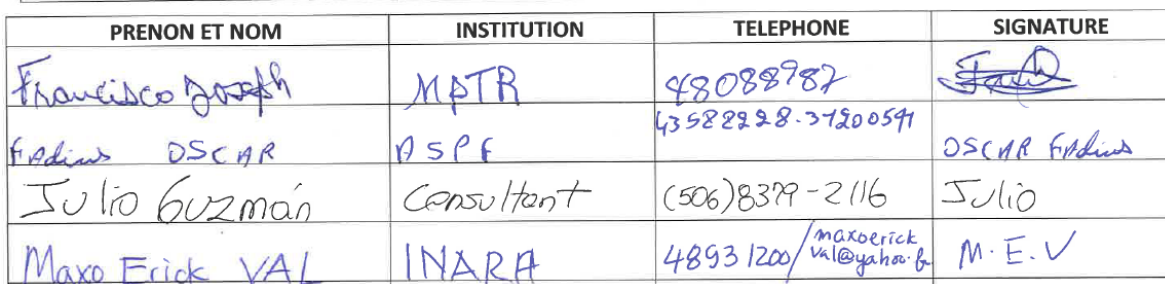 PRENON ET NOM INSTITUTION TELEPHONE SIGNATURE
Francisco Joseph MPTR 48088987
FAdius OSCAR ASPF 43582228-31200591 OSCAR FAdius
Julio Guzmán Consultant (506)8379-2116 Julio
Maxo Erick VAL INARA 48931200/maxoerick M.E.V
val@yahoo.fr